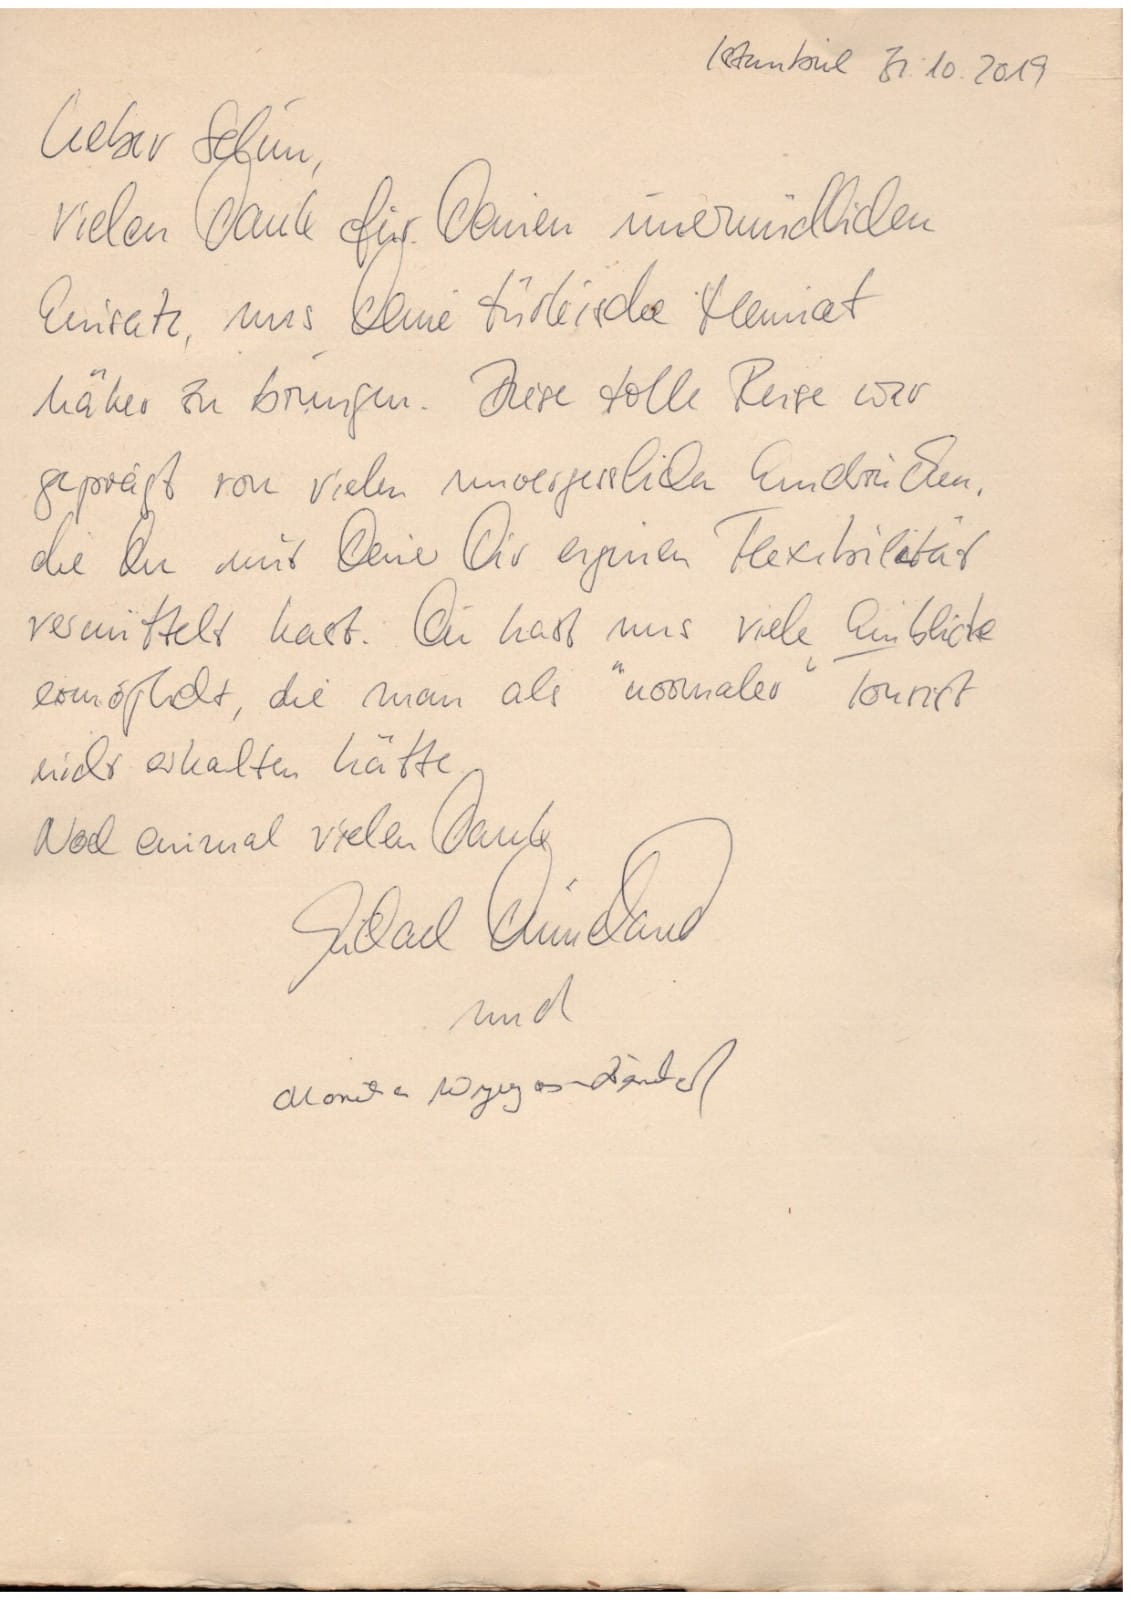 Istanbul 31.10.2019
Lieber Selim,
vielen Dank für Deinen unermüdlichen
Einsatz, uns Deine türkische Heimat
näher zu bringen. Diese tolle Reise war
geprägt von vielen unvergesslichen Eindrücken,
die Du mit Deiner Dir eigenen Flexibilität
vermittelt hast. Du hast uns viele Einblicke
ermöglicht, die man als "normaler" Tourist
nicht erhalten hätte
Noch einmal vielen Dank
und
Monika